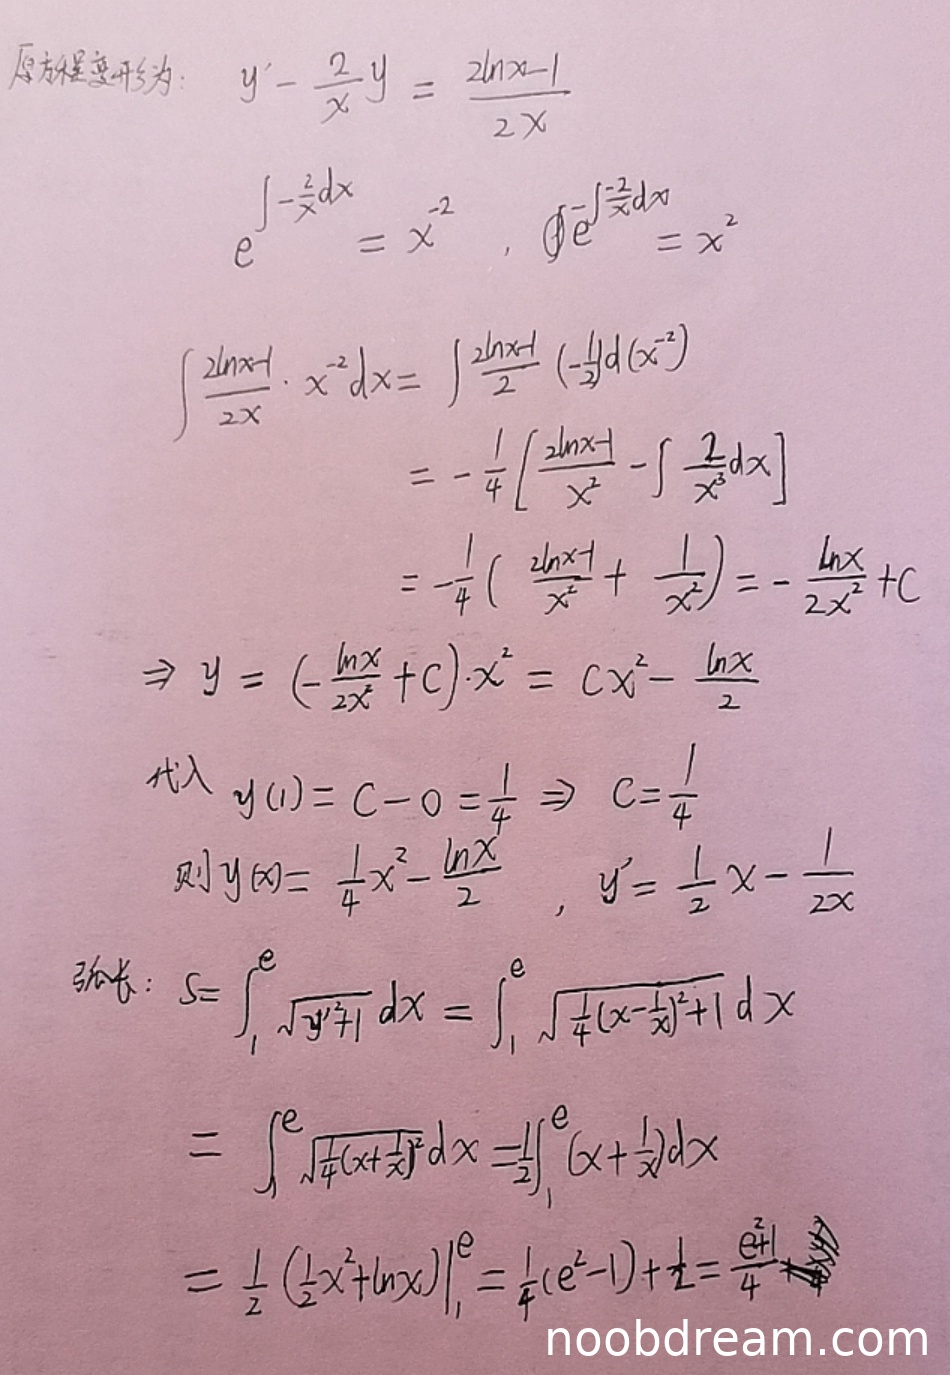 原方程变形为: y' - \frac{2}{x} y = \frac{2lnx-1}{2x}
e^{\int -\frac{2}{x}dx} = x^{-2} , e^{-\int \frac{-2}{x}dx} = x^2
\int \frac{2lnx-1}{2x} · x^{-2} dx = \int \frac{2lnx-1}{2} (-\frac{1}{2}) d(x^{-2})
= -\frac{1}{4} [ \frac{2lnx-1}{x^2} - \int \frac{2}{x^3} dx ]
= -\frac{1}{4} ( \frac{2lnx-1}{x^2} + \frac{1}{x^2} ) = - \frac{lnx}{2x^2} + C
⇒ y = (-\frac{lnx}{2x^2} + C)·x^2 = Cx^2 - \frac{lnx}{2}
代入 y(1) = C - 0 = \frac{1}{4} ⇒ C = \frac{1}{4}
则 y(x) = \frac{1}{4}x^2 - \frac{lnx}{2} , y' = \frac{1}{2} x - \frac{1}{2x}
弧长: S = \int_1^e \sqrt{y'^2+1} dx = \int_1^e \sqrt{\frac{1}{4}(x-\frac{1}{x})^2+1} dx
= \int_1^e \sqrt{\frac{1}{4}(x+\frac{1}{x})^2} dx = \frac{1}{2}\int_1^e (x+\frac{1}{x})dx
= \frac{1}{2} (\frac{1}{2}x^2+lnx)|_1^e = \frac{1}{4}(e^2-1)+\frac{1}{2} = \frac{e^2+1}{4}
noobdream.com